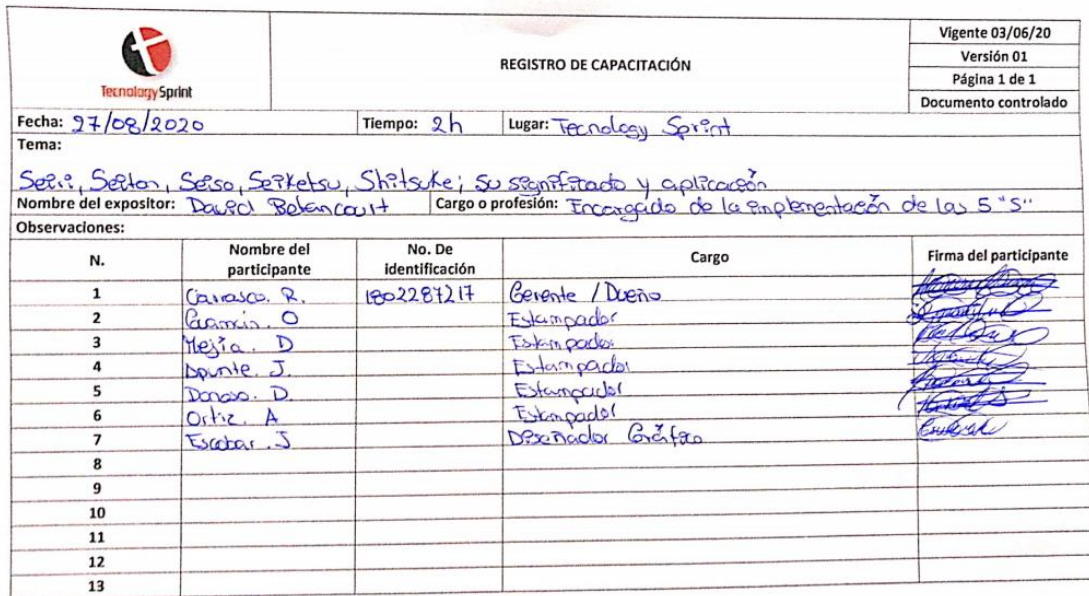 Tecnology Sprint
REGISTRO DE CAPACITACIÓN
Vigente 03/06/20
Versión 01
Página 1 de 1
Documento controlado
Fecha: 27/08/2020 Tiempo: 2h Lugar: Tecnology Sprint
Tema:
Seiri, Seiton, Seiso, Seiketsu, Shitsuke; su significado y aplicación
Nombre del expositor: David Betancourt Cargo o profesión: Encargado de la implementación de las 5 "S"
Observaciones:
N. Nombre del participante No. De identificación Cargo Firma del participante
1 Carrasco. R. 1802287217 Gerente / Dueño
2 O Estampador
3 Mejía. D Estampador
4 Apunte. J. Estampador
5 Donoso. D. Estampador
6 Ortiz. A Estampador
7 Escobar. J Diseñador Gráfico
8
9
10
11
12
13